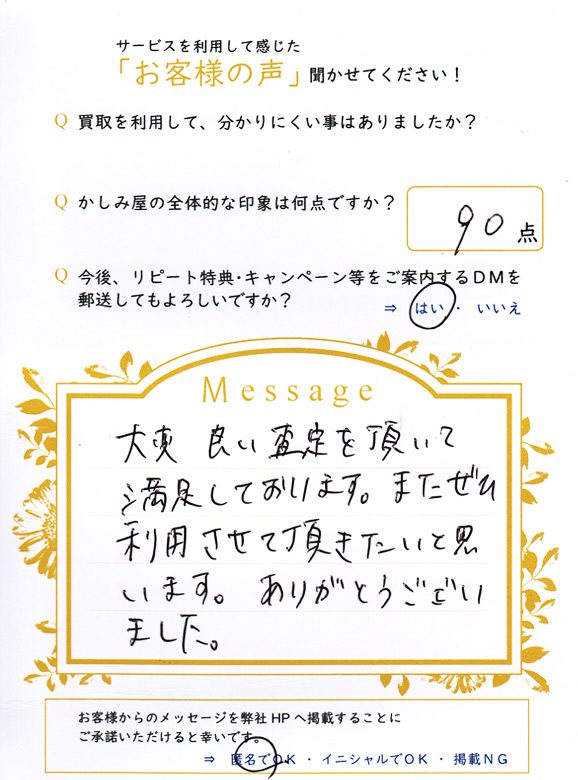 サービスを利用して感じた
「お客様の声」聞かせてください！
Q 買取を利用して、分かりにくい事はありましたか？
Q かしみ屋の全体的な印象は何点ですか？
90点
Q 今後、リピート特典・キャンペーン等をご案内するDMを
郵送してもよろしいですか？
⇒ はい ・ いいえ
Message
大変 良い 査定を頂いて
満足しております。またぜひ
利用させて頂きたいと思
います。ありがとうござい
ました。
お客様からのメッセージを弊社HPへ掲載することに
ご承諾いただけると幸いです。
⇒ 匿名でOK ・ イニシャルでOK ・ 掲載NG